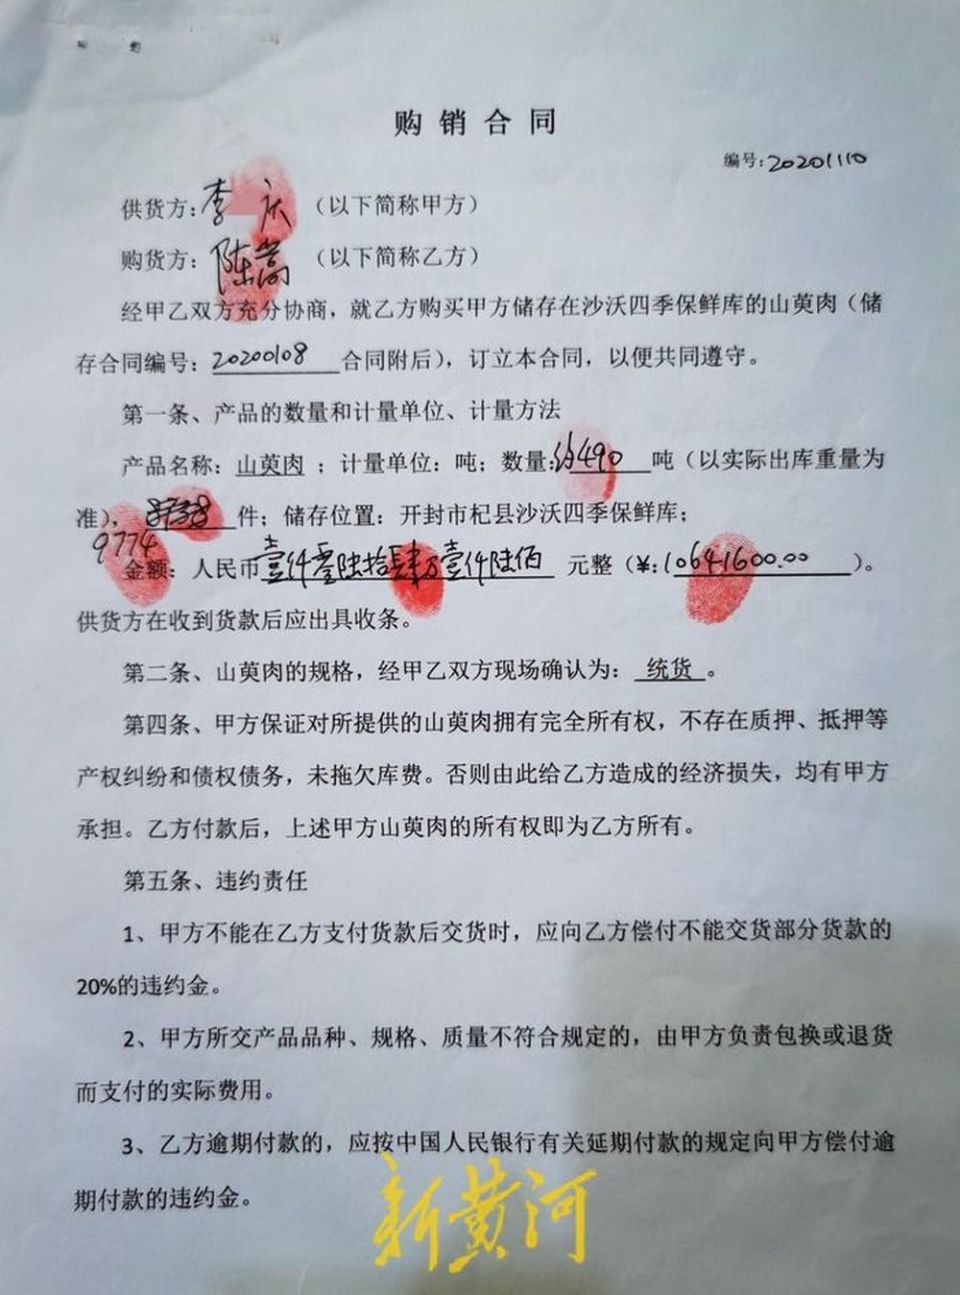 购销合同
编号:20201110
供货方:李庆（以下简称甲方）
购货方:陈嵩（以下简称乙方）
经甲乙双方充分协商，就乙方购买甲方储存在沙沃四季保鲜库的山萸肉（储
存合同编号：20200108合同附后），订立本合同，以便共同遵守。
第一条、产品的数量和计量单位、计量方法
产品名称：山萸肉；计量单位：吨；数量:约490吨（以实际出库重量为
准），件；储存位置：开封市杞县沙沃四季保鲜库；
9774
金额：人民币壹仟零陆拾肆万壹仟陆佰元整（¥:10641600.00）。
供货方在收到货款后应出具收条。
第二条、山萸肉的规格，经甲乙双方现场确认为：统货。
第四条、甲方保证对所提供的山萸肉拥有完全所有权，不存在质押、抵押等
产权纠纷和债权债务，未拖欠库费。否则由此给乙方造成的经济损失，均有甲方
承担。乙方付款后，上述甲方山萸肉的所有权即为乙方所有。
第五条、违约责任
1、甲方不能在乙方支付货款后交货时，应向乙方偿付不能交货部分货款的
20%的违约金。
2、甲方所交产品品种、规格、质量不符合规定的，由甲方负责包换或退货
而支付的实际费用。
3、乙方逾期付款的，应按中国人民银行有关延期付款的规定向甲方偿付逾
期付款的违约金。
新黄河